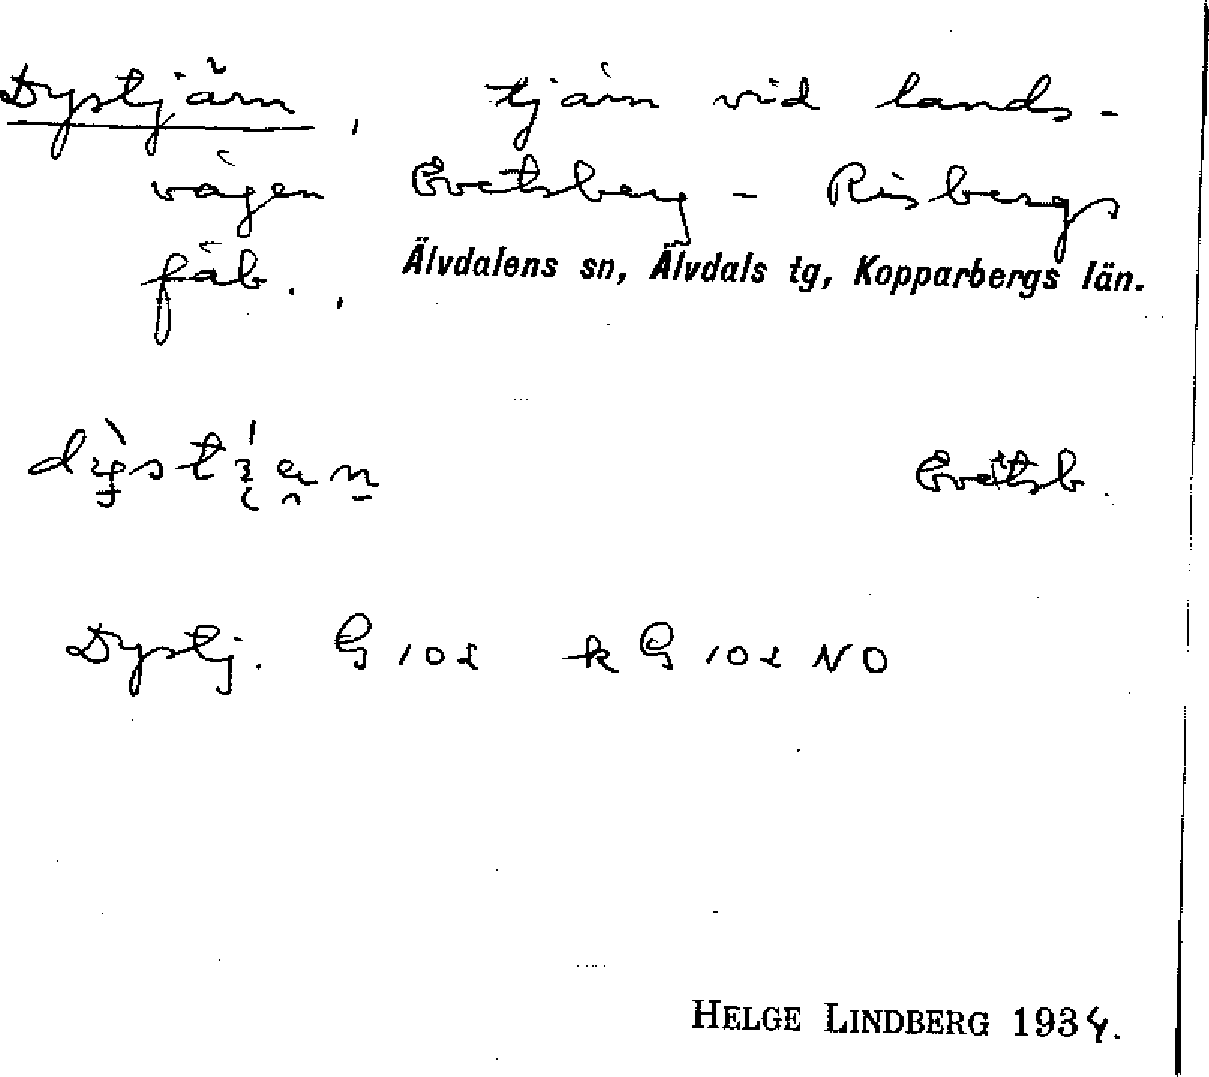 Dystjärn, tjärn vid lands-
vägen Evertsberg - Risbergs
fäb., Älvdalens sn, Älvdals tg, Kopparbergs län.
Evertsb.
Dystj. G 102 k G 102 NO
HELGE LINDBERG 1934.